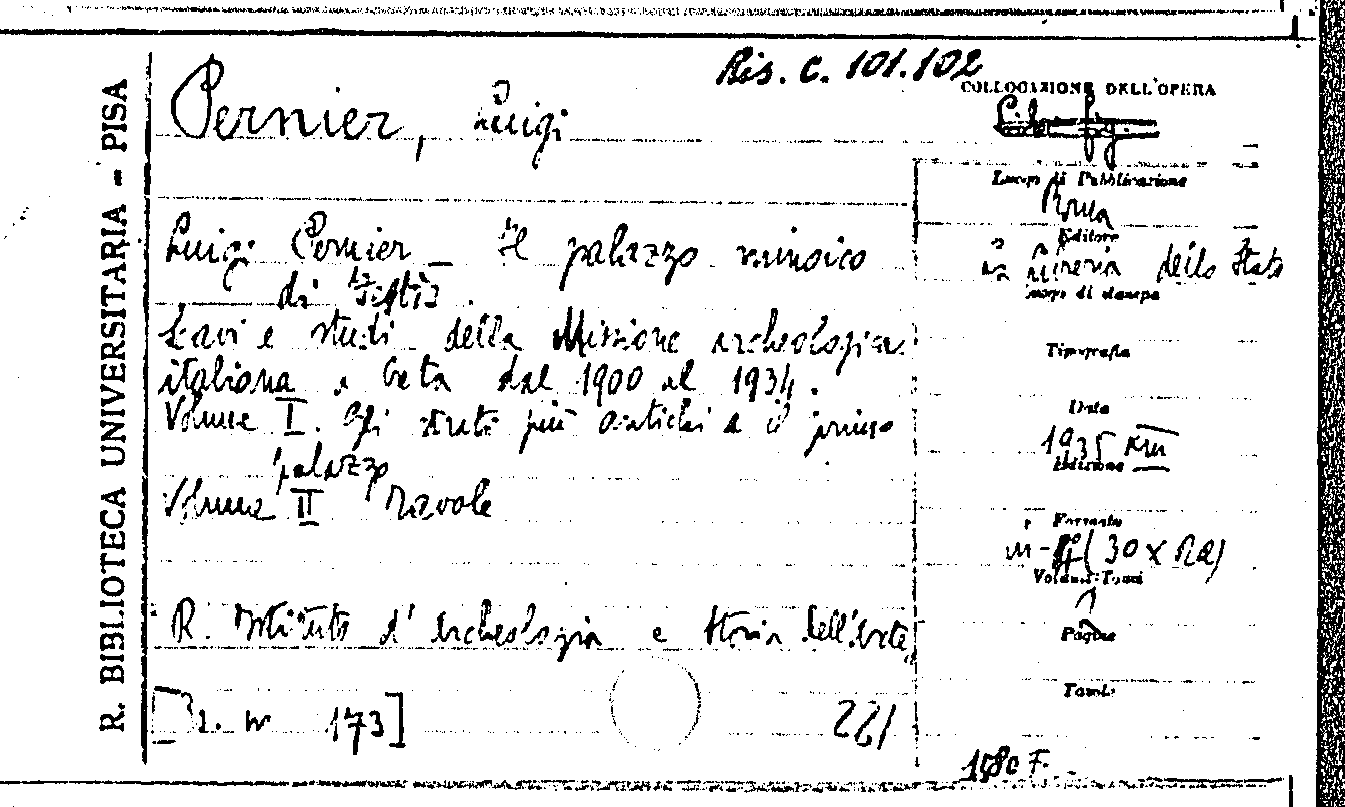 R. BIBLIOTECA UNIVERSITARIA - PISA
Ris. C. 101.102
COLLOCAZIONE DELL'OPERA
Pernier, Luigi
Luogo di Pubblicazione
Roma
Luigi Pernier - Il palazzo minoico
di Festòs.
Editore
La Libreria dello Stato
Luogo di stampa
Scavi e studi della Missione archeologica
italiana a Creta dal 1900 al 1934.
Tipografia
Volume I. Gli strati più antichi e il primo
palazzo
Data
1935 XIII
Edizione
Volume II Tavole
Formato
in-fº (30 x
Volumi-Tomi
R. Istituto d'Archeologia e Storia dell'Arte
Pagine
Tavole
173]
221